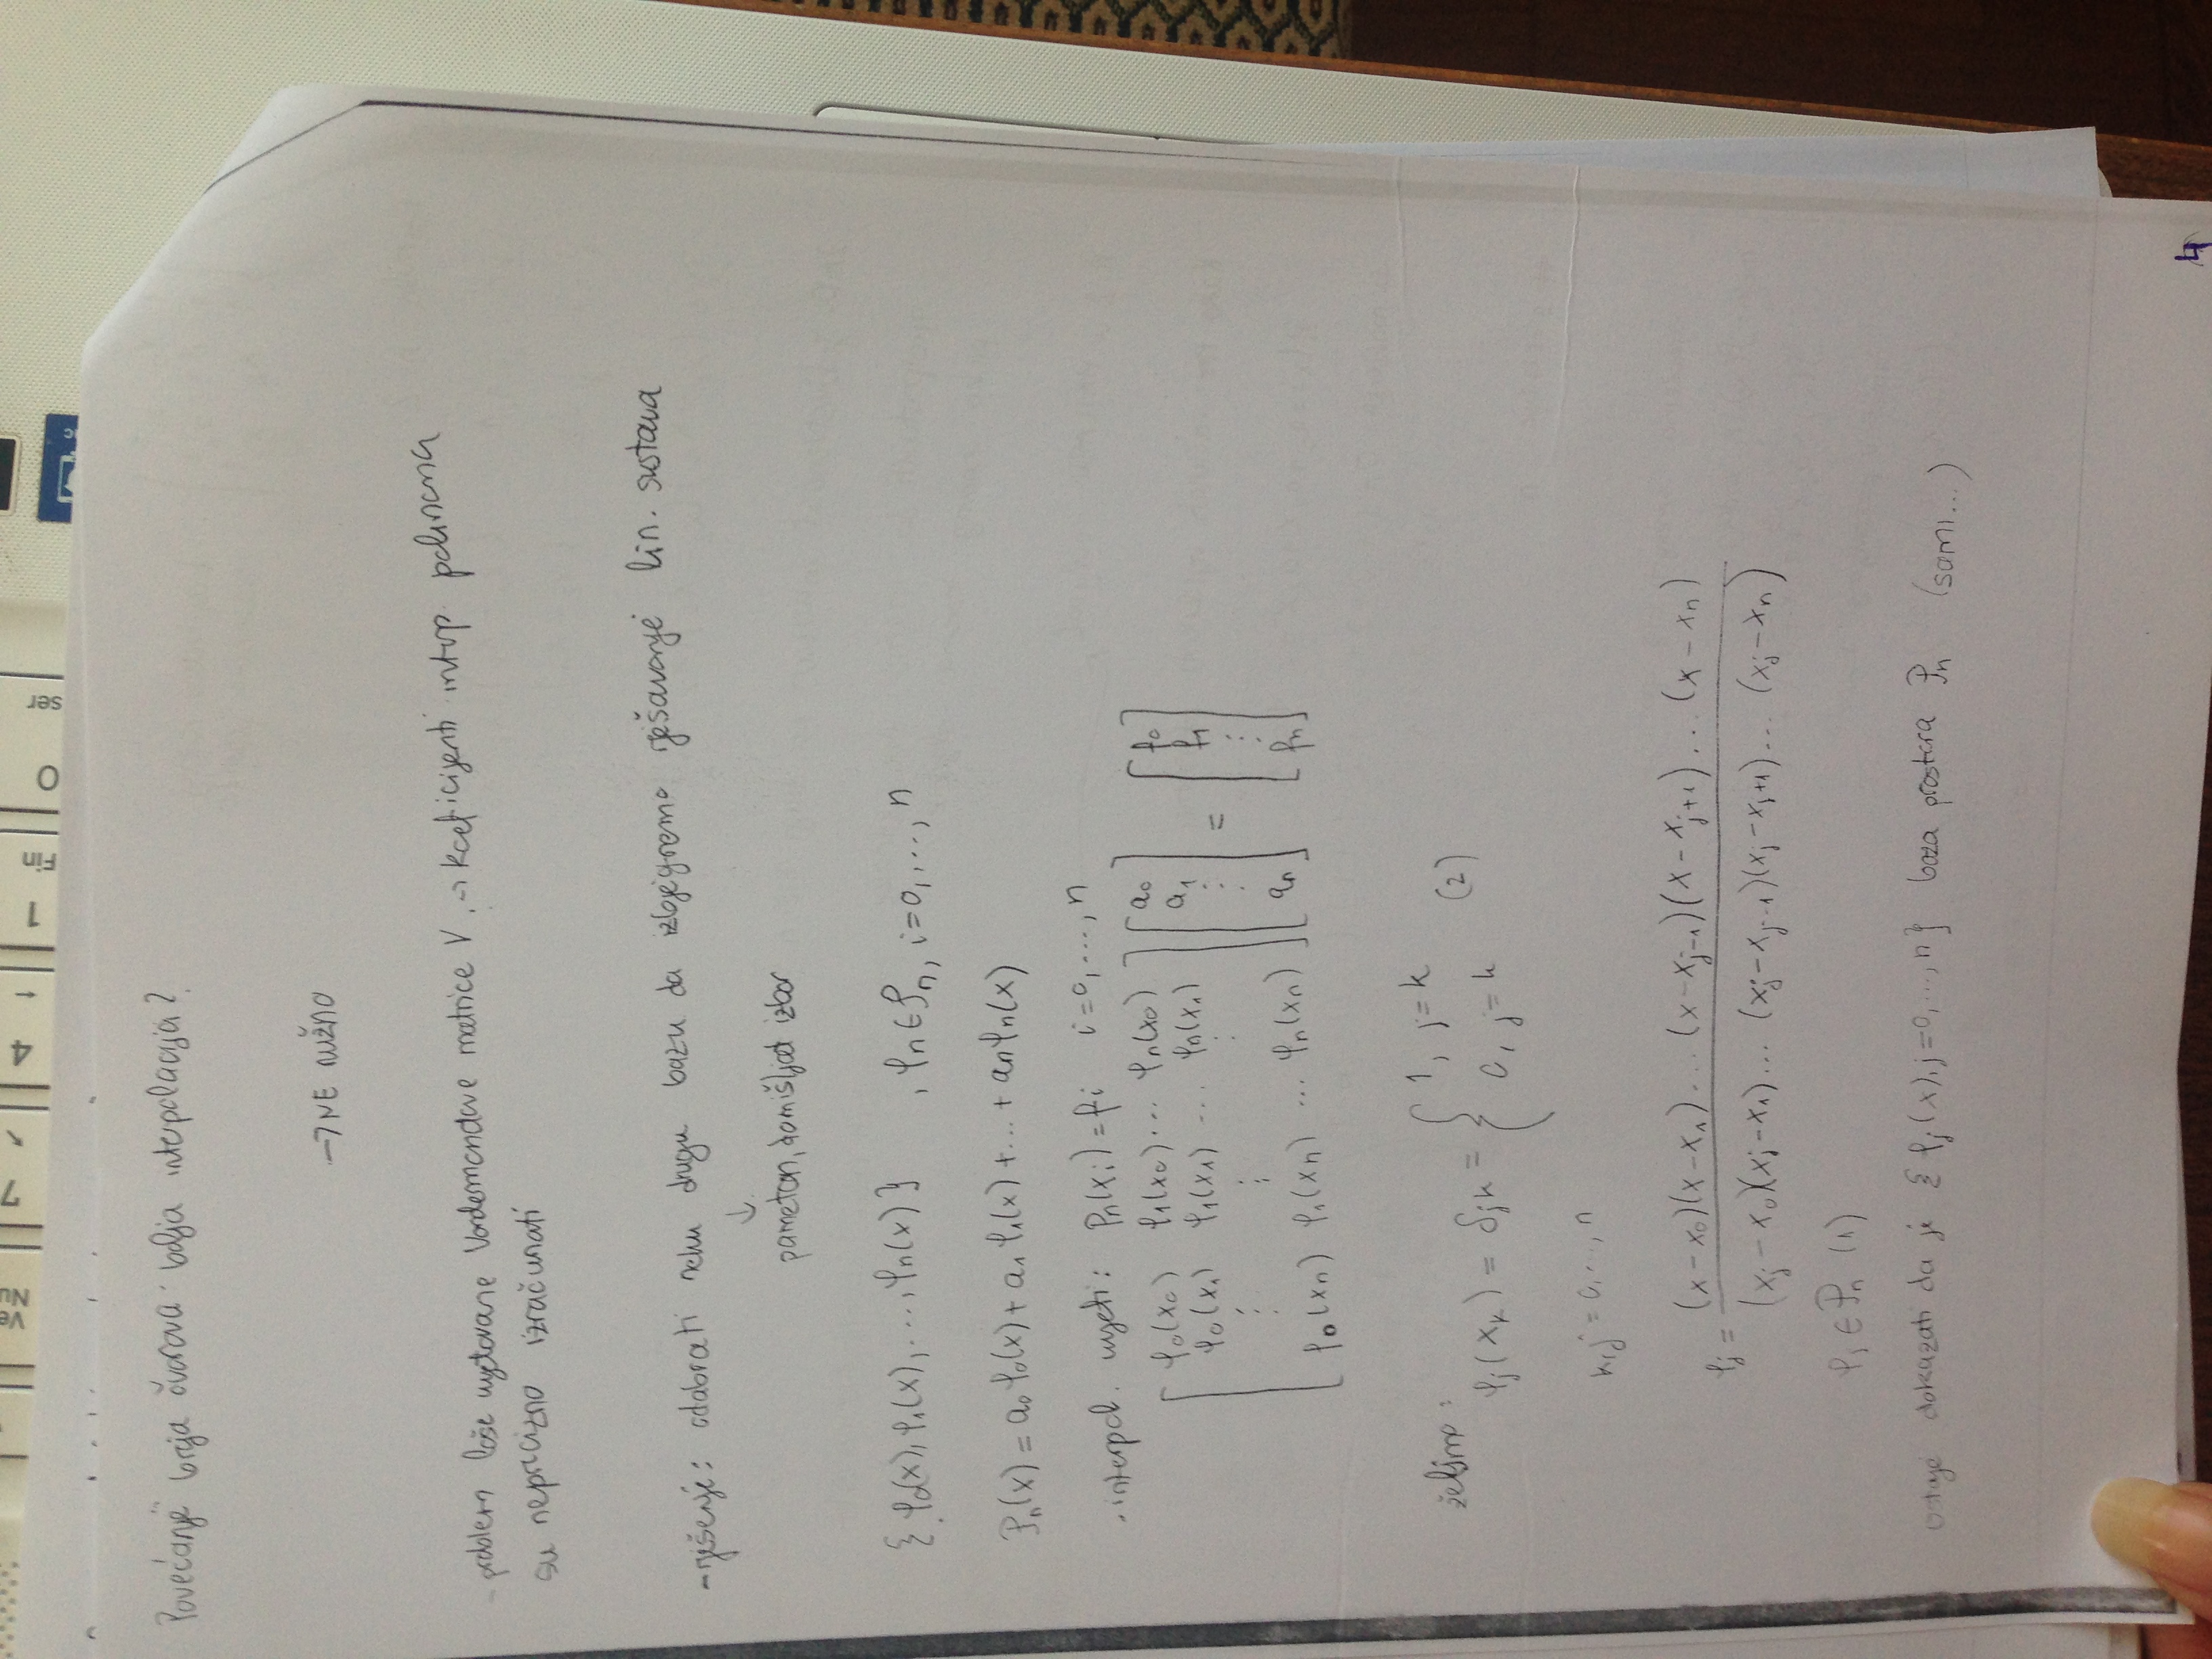 Ve
Nu
7
↖
4
←
1
Fin
0
ser
Povećanje broja čvorova bolja interpolacija?
→ NE nužno
- problem loše uvjetovane Vandermondove matrice V. → koeficijenti interp. polinoma
su neprecizno izračunati
- rješenje: odabrati neku drugu bazu da izbjegnemo rješavanje lin. sustava
↓
pametan, domišljat izbor
{φ₀(x), φ₁(x), ..., φn(x)} , φn ∈ Pn, i=0,...,n
Pn(x) = a₀φ₀(x) + a₁φ₁(x) + ... + anφn(x)
- interpol. uvjeti: Pn(xi) = fi i=0,...,n
[ φ₀(x₀) φ₁(x₀) ... φn(x₀) ] [ a₀ ] [ f₀ ]
φ₀(x₁) φ₁(x₁) ... φn(x₁) a₁ f₁
⋮ ⋮ ⋮ ⋮ = ⋮
[ φ₀(xn) φ₁(xn) ... φn(xn) ] [ an ] [ fn ]
želimo:
φj(xk) = δjk = { 1, j=k (2)
0, j=k
k,j = 0,...,n
φj = (x-x₀)(x-x₁)...(x-xj-1)(x-xj+1)...(x-xn)
(xj-x₀)(xj-x₁)...(xj-xj-1)(xj-xj+1)...(xj-xn)
φj ∈ Pn (1)
ostaje dokazati da je {φj(x), j=0,...,n} baza prostora Pn (sami...)
4